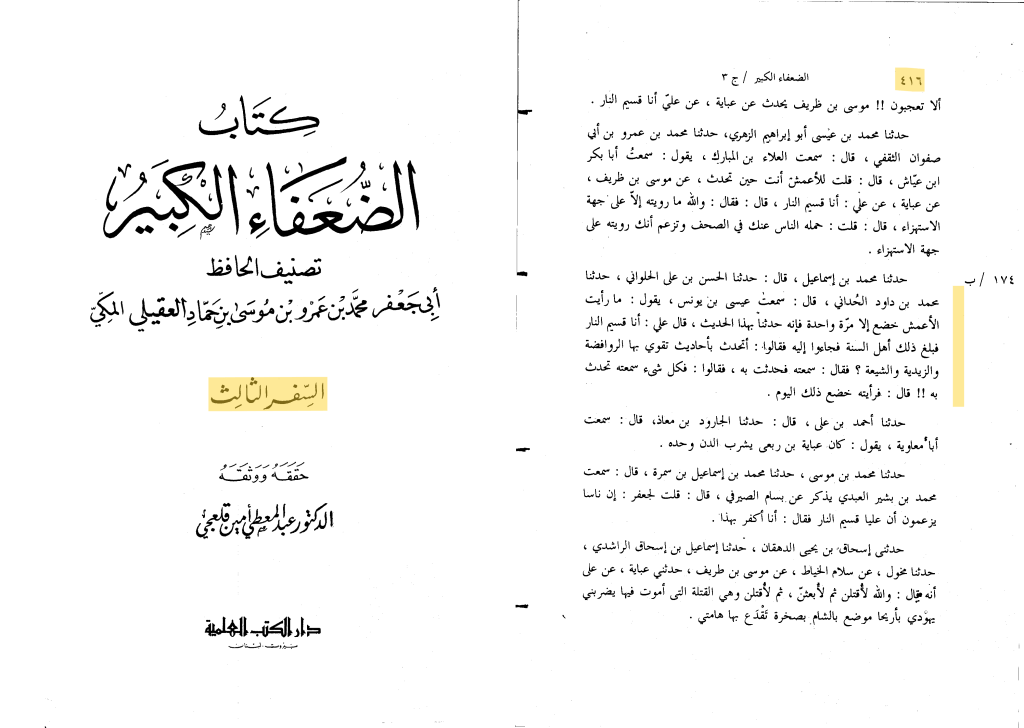 كتاب
الضعفاء الكبير
تصنيف الحافظ
أبي جعفر محمد بن عمرو بن موسى بن حماد العقيلي المكي
السفر الثالث
حققه ووثقه
الدكتور عبد المعطي أمين قلعجي
دار الكتب العلمية
بيروت - لبنان
٤١٦
الضعفاء الكبير / ج ٣
ألا تعجبون !! موسى بن ظريف يحدث عن عباية ، عن عليّ أنا قسيم النار .
حدثنا محمد بن عيسى أبو إبراهيم الزهري، حدثنا محمد بن عمرو بن أبي
صفوان الثقفي ، قال : سمعت العلاء بن المبارك ، يقول : سمعتُ أبا بكر
ابن عيّاش ، قال : قلت للأعمش أنت حين تحدث ، عن موسى بن ظريف ،
عن عباية ، عن علي : أنا قسيم النار ، قال : فقال : والله ما رويته إلاّ على جهة
الاستهزاء ، قال : قلت : حمله الناس عنك في الصحف وتزعم أنك رويته على
جهة الاستهزاء .
حدثنا محمد بن إسماعيل ، قال : حدثنا الحسن بن على الحلواني ، حدثنا
محمد بن داود الحُداني ، قال : سمعتُ عيسى بن يونس ، يقول : ما رأيت
الأعمش خضع إلا مرّة واحدة فإنه حدثنا بهذا الحديث ، قال علي : أنا قسيم النار
فبلغ ذلك أهل السنة فجاءوا إليه فقالوا : أتحدث بأحاديث تقوي بها الروافضة
والزيدية والشيعة ؟ فقال : سمعته فحدثت به ، فقالوا : فكل شىء سمعته تحدث
به !! قال : فرأيته خضع ذلك اليوم .
١٧٤ / ب
حدثنا أحمد بن على ، قال : حدثنا الجارود بن معاذ، قال : سمعت
أبا معاوية ، يقول : كان عباية بن ربعى يشرب الدن وحده .
حدثنا محمد بن موسى ، حدثنا محمد بن إسماعيل بن سمرة ، قال : سمعت
محمد بن بشير العبدي يذكر عن بسام الصيرفي ، قال : قلت لجعفر : إن ناسا
يزعمون أن عليا قسيم النار فقال : أنا أكفر بهذا .
حدثنى إسحاق بن يحيى الدهقان ، حدثنا إسماعيل بن إسحاق الراشدي ،
حدثنا مخول ، عن سلام الخياط ، عن موسى بن طريف ، حدثني عباية ، عن على
أنه قال : والله لأقتلن ثم لأبعثنّ ، ثم لأقتلن وهي القتلة التى أموت فيها يضربني
يهوّدي بأريحا موضع بالشام بصخرة تَقْدَع بها هامتي .